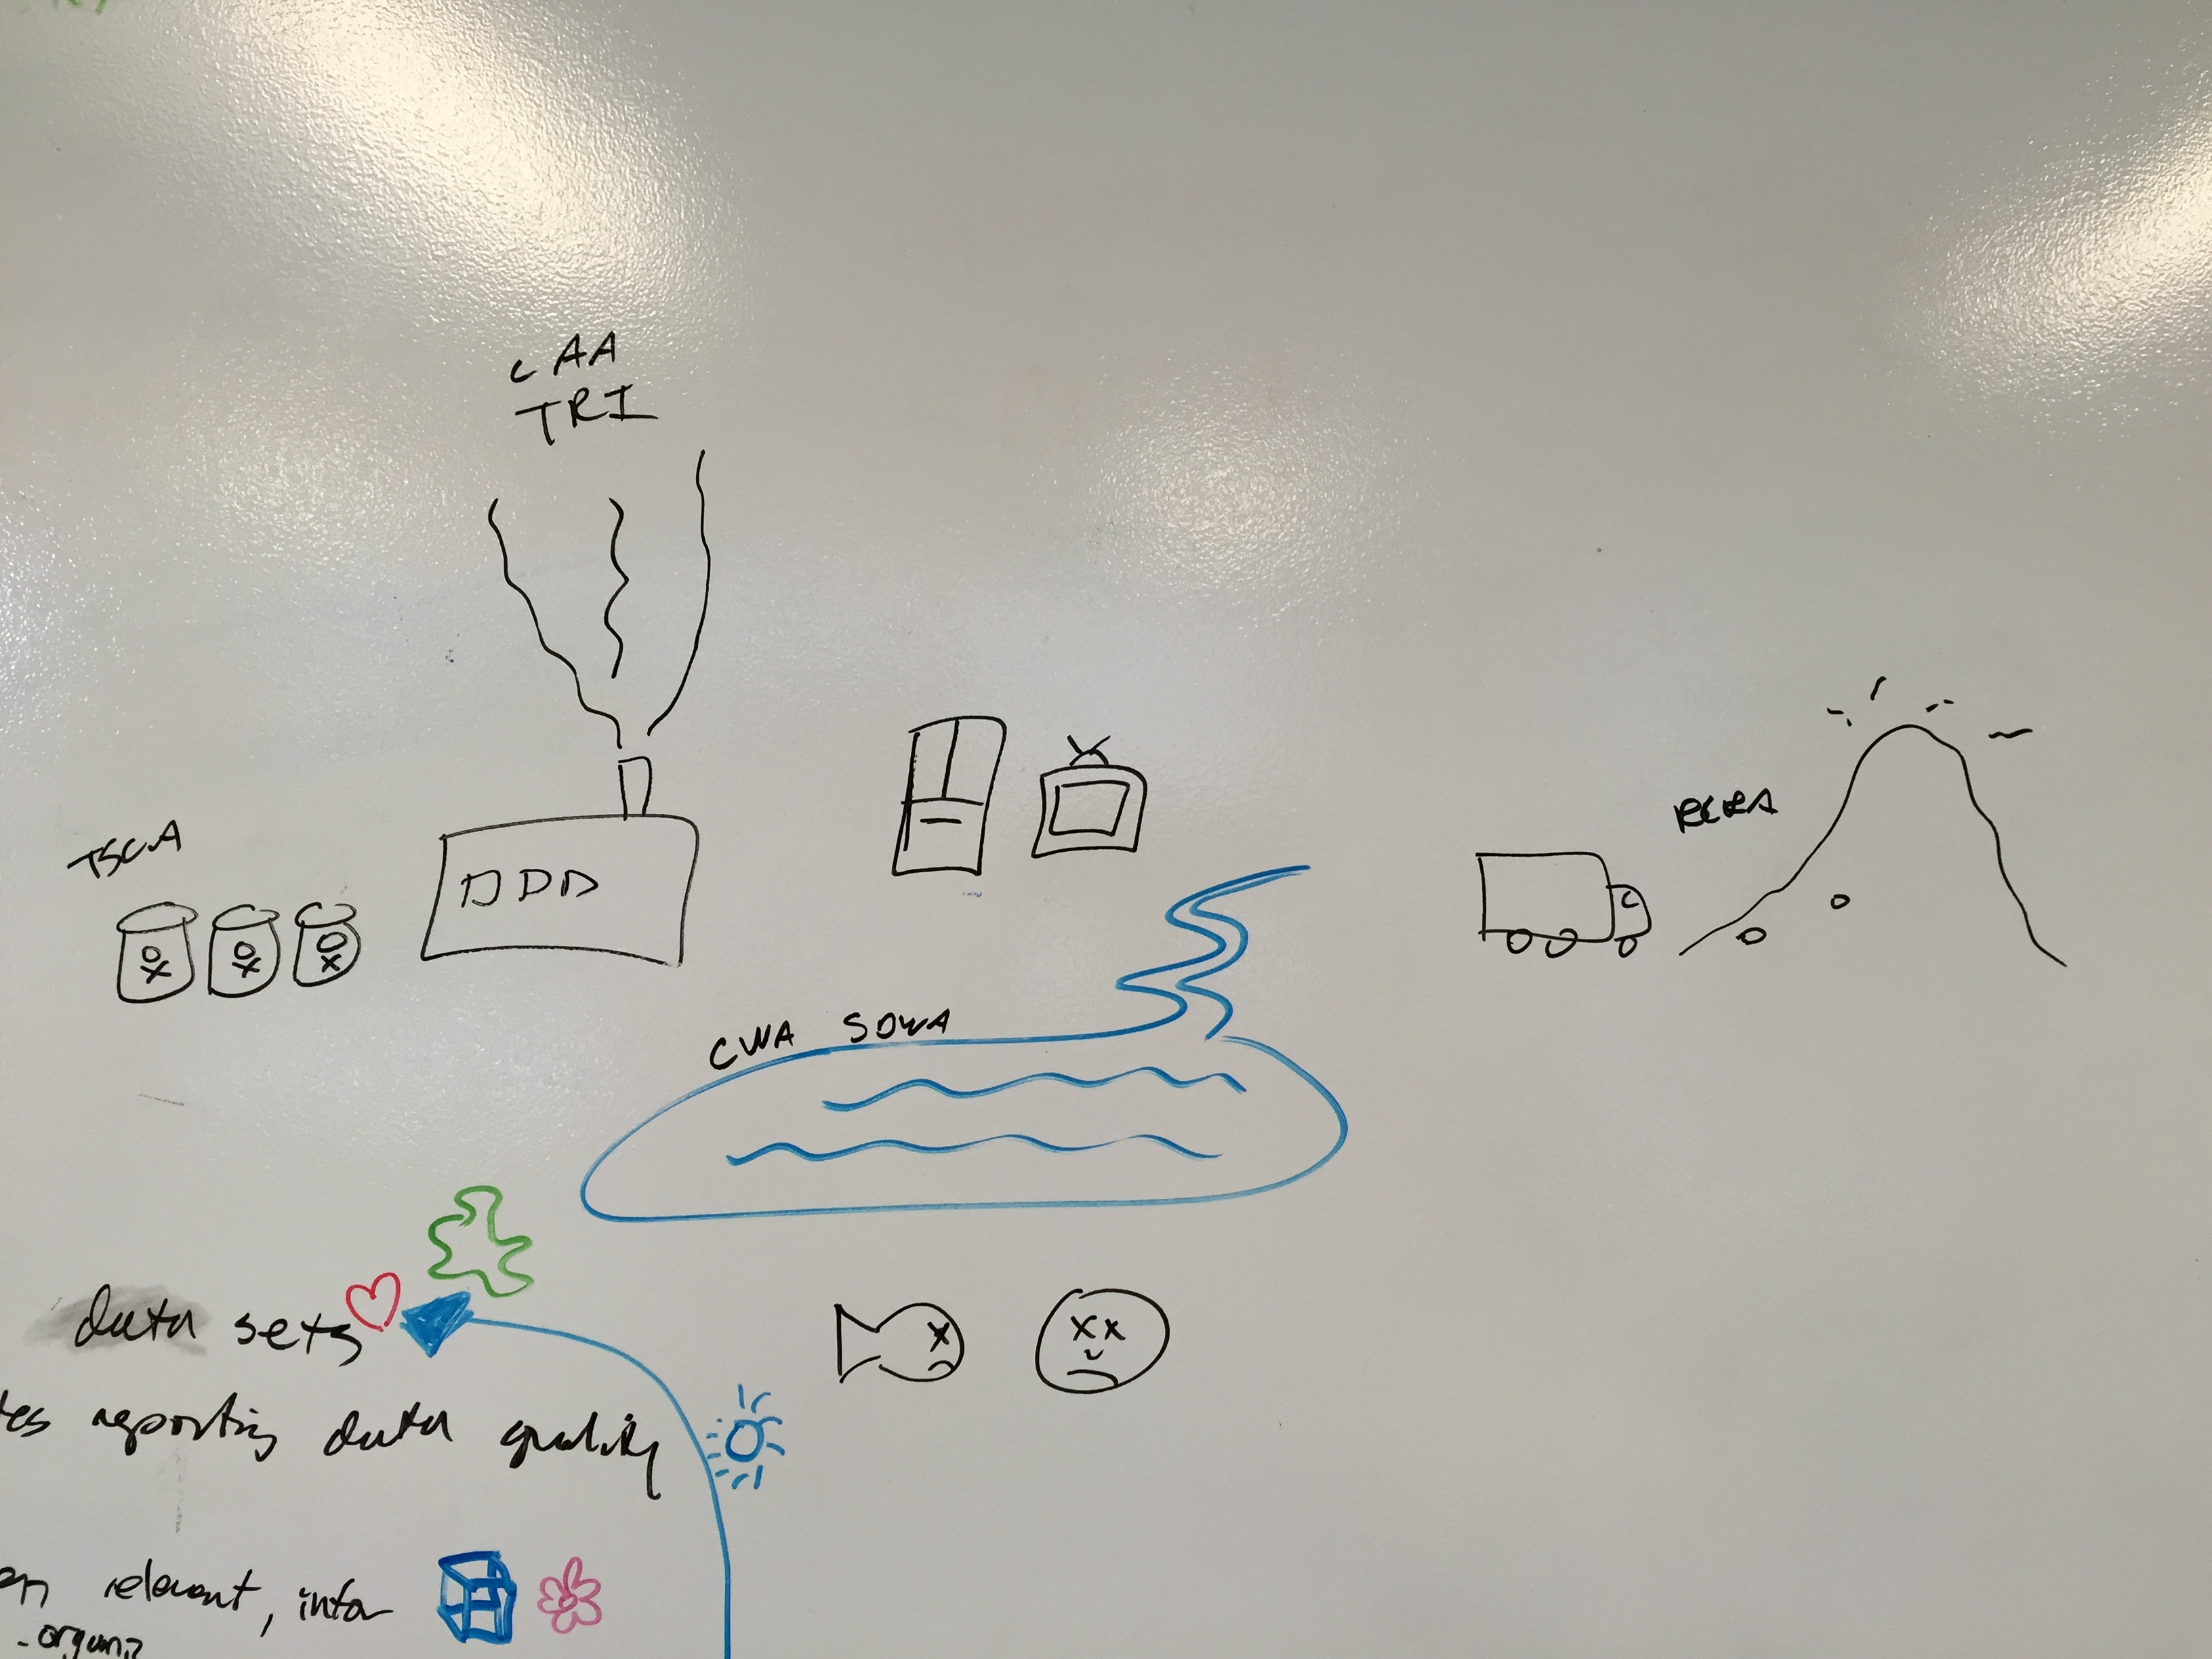 CAA
TRI
TSCA
RCRA
CWA SDWA
data sets
reporting data quality
relevant, info